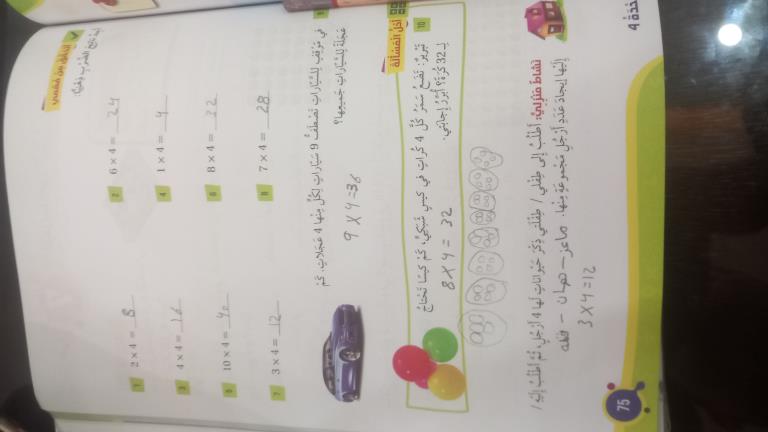 أتحقق من فهمي
أجد ناتج الضرب ذهنيًّا:
1 2 × 4 = 8
2 6 × 4 = 24
3 4 × 4 = 16
4 1 × 4 = 4
5 10 × 4 = 40
6 8 × 4 = 32
7 3 × 4 = 12
8 7 × 4 = 28
9 في مَوْقِفٍ لِلسَّيّاراتِ تَصْطَفُّ 9 سَيّاراتٍ لِكُلٍّ مِنْها 4 عَجَلاتٍ. كَمْ
عَجَلَةً لِلسَّيّاراتِ جَميعِها؟
9 × 4 = 36
أَحُلُّ الْمَسْأَلَةَ
10 تَبْريرٌ: تَضَعُ سَمَرُ كُلَّ 4 كُراتٍ في كيسٍ شَبَكِيٍّ، كَمْ كيسًا تَحْتاجُ
لِـ 32 كُرَةً؟ أُبَرِّرُ إِجابَتي.
8 × 4 = 32
نَشاطٌ مَنْزِلِيٌّ: أَطْلُبُ إِلى طِفْلي / طِفْلَتي ذِكْرَ حَيَواناتٍ لَها 4 أَرْجُلٍ، ثُمَّ أَطْلُبُ إِلَيْهِ /
إِلَيْها إيجادَ عَدَدِ أَرْجُلِ مَجْموعَةٍ مِنْها.
ماعز - حصان - قطة
3 × 4 = 12
75